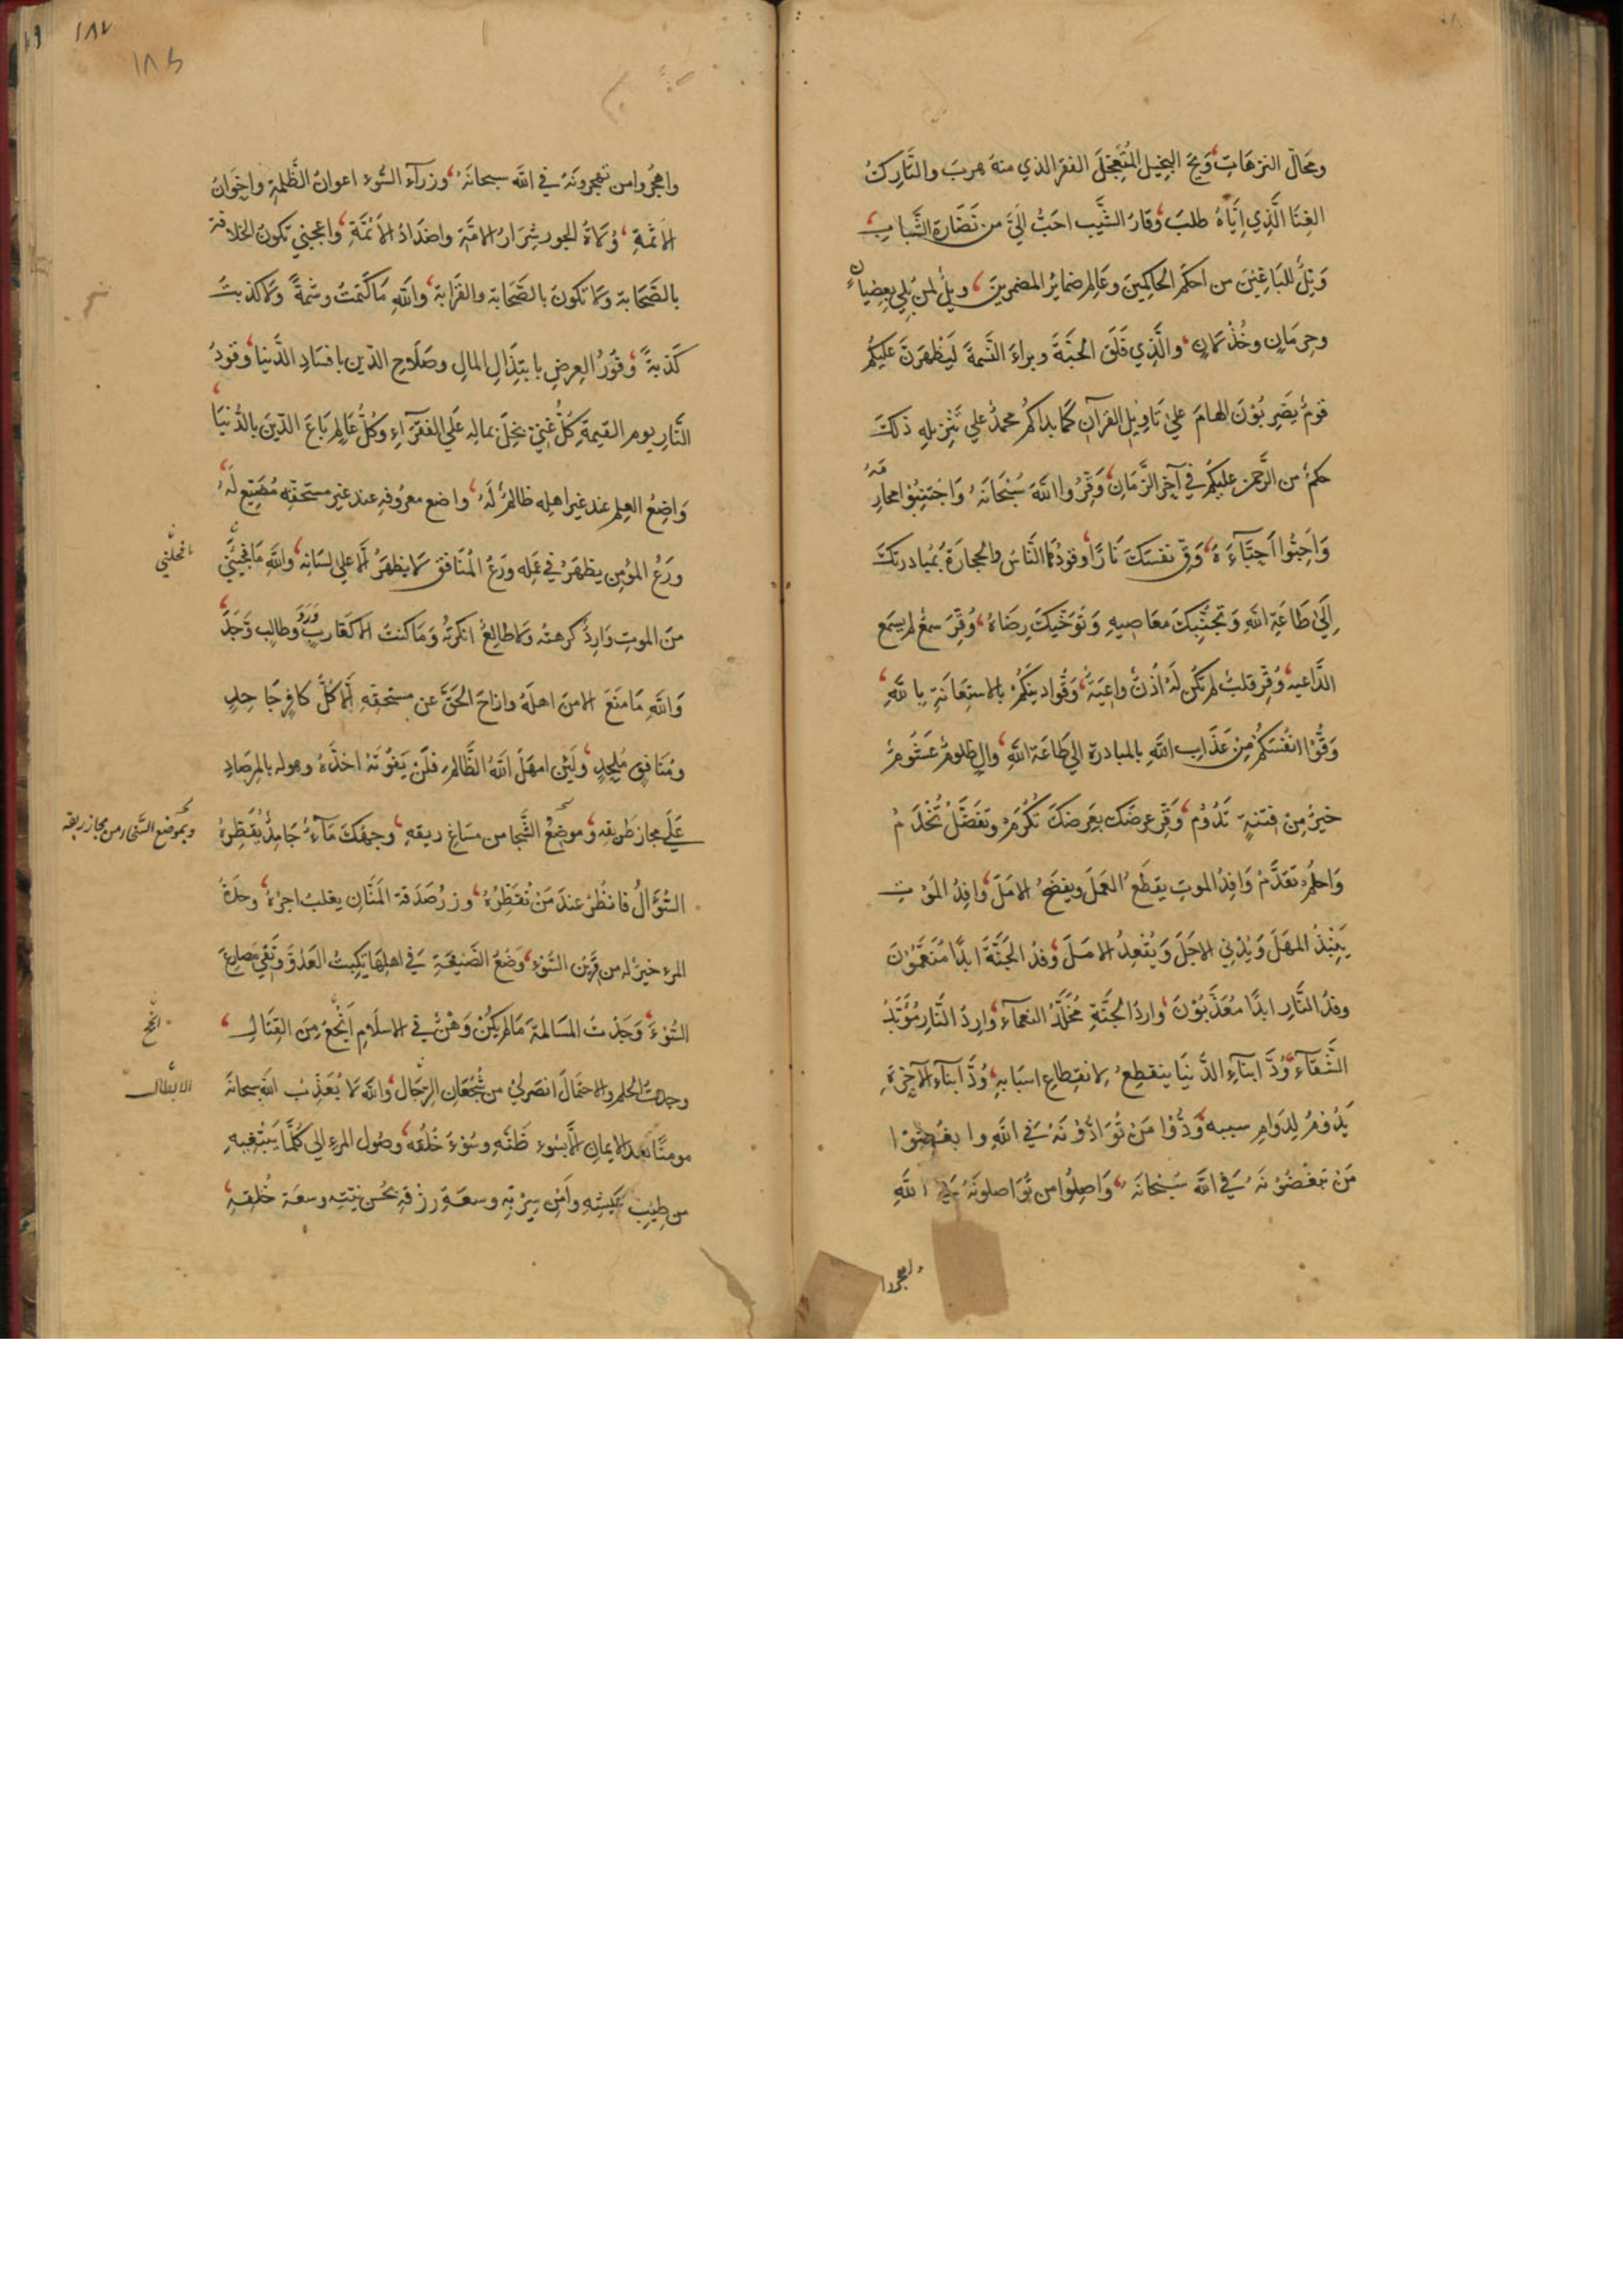 ومحالّ الترهات وَيحَ البخيل المُتعجِّلَ الفقر الذي منهُ هربَ والتَّارِكُ
الغِنَا الَّذِي اِيَّاهُ طلبَ وَقارُ الشَّيب احَبُّ اِلَيَّ من نَضَارَة الشَّباب
وَيلٌ للبَاغِيْنَ من احكَمِ الحاكِمِينَ وعَالِمِ ضمائِرُ المضمرِينَ ويلٌ لمن بُلِيَ بِعِصْيانٍ
وحِرمَانٍ وخُذْلانٍ والَّذِي فَلَقَ الحَبَّةَ وبراءَ النَّسمَةَ لَيَظْهرَنَّ عليكُم
قومٌ يَضرِبُوْنَ الهامَ عليٰ تَاوِيْلِ القرآنِ كَمَا بداكُم محمدٌ علي تَنْزِيلِهِ ذلكَ
حكمٌ من الرَّحمٰنِ عليكُم فِي آخِرِ الزَّمَانِ وَقِّرُوا اللّٰهَ سُبْحَانَهُ وَاجْتَنِبُوْا محارِمَهُ
وَاحِبُّوا اَحِبَّآءَهُ وَقِ نفسَكَ نَارًا وقودُهَا النَّاسُ والحِجارَةُ بمُبادرتِكَ
اِلَي طَاعَةِ اللّٰهِ وَتجنُّبِكَ مَعَاصِيهِ وَتَوَخِّيكَ رِضَاهُ وُقِرَ سمعٌ لم يسمَع
الدَّاعِيه وُقِرَ قلبٌ لم تكُن لَهُ اُذُنٌ واعِيَةٌ وَقُّوا دينَكُمْ بالاستِعَانَةِ بِاللّٰهِ
وَقُّوْا انفُسَكُمْ مِنْ عَذَابِ اللّٰهِ بالمبادرة اِلي طَاعَة اللّٰهِ والٍ ظلومٌ غَشُومٌ
خيرٌ مِنْ فِتنةٍ تَدُوْم وَقِّر عرضَكَ بِعَرَضِكَ تُكْرَمْ وتفَضَّلْ تُخْدَمْ
وَاحلُم تُقَدَّمْ وَافِدُ الموتِ يقطَعُ العَمَلَ ويفضَحُ الامَلَ وَافِدُ المَوْتِ
يُبِيْدُ المهَلَ وَيُدْنِي الاجَلَ وَيُقْعِدُ الامَلَ وَفدُ الجَنَّةَ ابدًا مُنَعَّمُوْنَ
وفدُ النَّارِ ابدًا معُذَّبُوْنَ وارِدُ الجَنَّةِ مُخَلَّدُ النعمآءِ وارِدُ النَّارِ مُؤَبَّدُ
الشَّقآءِ وُدُّ ابنَآءِ الدُّنيَا ينقطِعُ لانقِطاعِ اسبَابِهِ وُدُّ ابنآءِ الآخِرَةِ
يَدُوْمُ لِدَوَامِ سببه وَدُّوْا مَنْ تُوَادُّوْنَهُ فِي اللّٰهِ وابغُضُوْا
مَنْ تبغُضُوْنَهُ فِي اللّٰه سُبْحَانَهُ وَاصِلُوا من تُوَاصلونَهُ في اللّٰهِ
واهجُروا
١٨٧
١٨٥
واهجُروا من تهجرونَهُ في اللّٰه سبحانَهُ وزرآءُ السُّوء اعوانُ الظَّلمةِ واِخوَانُ
الاَثمَةِ وُلاةُ الجور شِرَارُ الامَّةِ واضدَادُ الاَئمَّةِ واعجبني تكونُ الخلافة
بالصَّحَابة وَلا تكونَ بالصَّحَابَة والقرَابة واللّٰهِ مَا كَتَمتُ وشمَةً وَلا كذبتُ
كَذبةً وُفُوْرُ العِرضِ بابتِذَالِ المالِ وصَلَاحِ الدّينِ بافسَادِ الدُّنيا وقودُ
النَّارِ يوم القيٰمةِ كُلُّ غَنِيٍّ بخِلَ بمالِهِ عَلَي الفقَرَآءِ وكُلُّ عَالِمٍ بَاعَ الدِّينَ بالدُّنيَا
وَاضِعُ العِلم عند غير اهلِه ظالمٌ لَهُ واضع معرُوفِهِ عند غيرِ مستحقِّه مُضَيِّعٌ لَهُ
ورَعُ المؤمِن يظهَرُ في عَمَلِه ورَعُ المُنَافق لا يظهَرُ اِلَّا علي لِسَانِه واللّٰهِ مَا فَجِيَئَنِي
من الموتِ وَارِدٌ كرهته وَلا طالِعٌ انكرتُهُ وَمَا كنتُ الا كقَارِبٍ وَرَدَ وطالِبٍ وَجَدَ
وَاللّٰهِ مَا مَنَعَ الامنَ اهلَهُ وازاحَ الحَقَّ عن مستحقِّهِ اِلَّا كلُّ كافِرٍ جَاحِدٍ
ومُنَافِقٍ مُلحِدٍ ولَئِن امهَلَ اللّٰهُ الظَّالِمَ فلَن يَفُوْتَهُ اخذُهُ وهو له بالمِرصَادِ
عَلَي مجازِ طَرِيقِه وموضِعُ الشَّجَا من مسَاغِ ريقِهِ وجهُكَ مَآءٌ جَامِدٌ يُقَطِّرُهُ
السُّؤَالُ فانظُرْ عندَ مَنْ تُقَطِّرُهُ وِزرُ صَدَقَة المَنَّانِ يغلبُ اجرُهُ وحدَةُ
المرء خيرٌ له من قَرِين السُّوْءِ وَضْعُ الصَّنِيعَةِ فِي اهلِهَا يَكبِتُ العَدُوَّ وَيَقِي مَصَارِعَ
السُّوْءِ وَجَدْتُ المسَالمةَ مَا لم يكُنْ وَهْنٌ في الاسلامِ اَنْجَعَ مِنَ القِتَالِ
وجدتُ الحلم والاحتمَالَ انصَرَ لِي من شُجْعَانِ الرِّجَالِ واللّٰه لا يُعَذِّبُ اللّٰه سبحانَهُ
مومنًا بعد الايمان اِلَّا بسُوء ظَنِّهِ وسُوْءِ خُلُقِه وصُول المرءِ اِلي كُلّمَا يَبْتَغِيهِ
من طِيْبِ عَيْشِهِ وَاَمْنِ سِرْبِهِ وسعَةِ رزقهِ بحُسن نيّته وسعَة خُلقِهِ
وبموضع الشجا من مجاز ريقه
انجح
الابطال